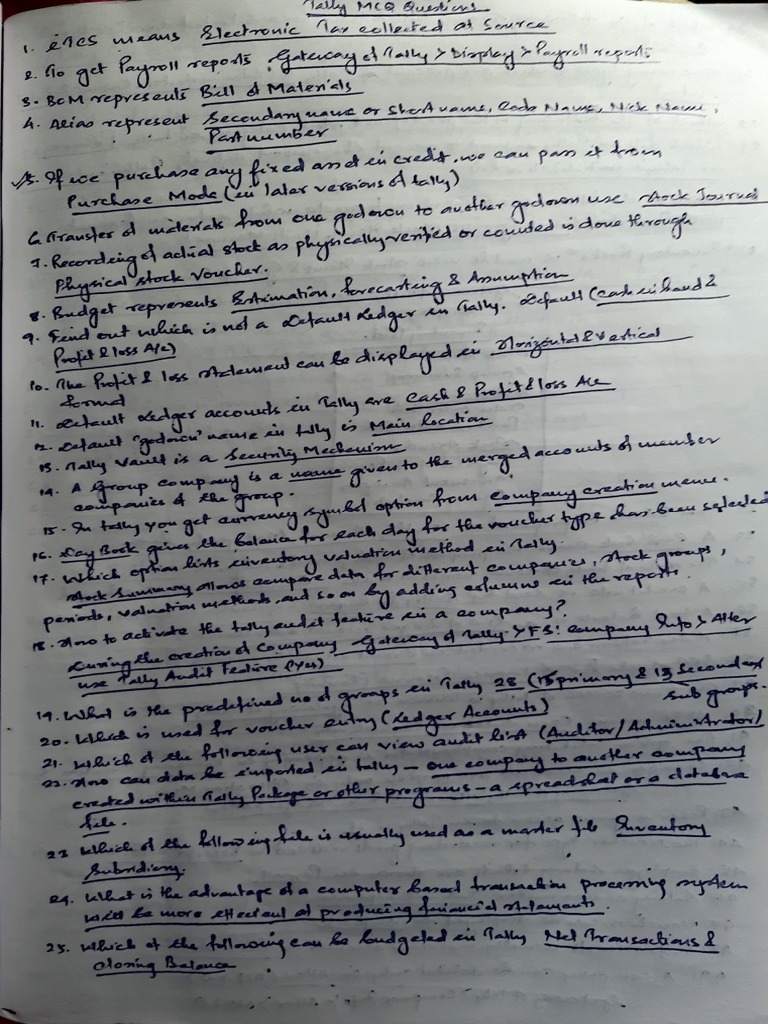 Tally MCQ Questions
1. eTCS means Electronic Tax collected at Source
2. To get Payroll reports Gateway of Tally > Display > Payroll reports
3. BOM represents Bill of Materials
4. Alias represent Secondary name or Short name, Code Name, Nick Name,
Part number
5. If we purchase any fixed asset in credit, we can pass it from
Purchase Mode (in later versions of tally)
6. Transfer of materials from one godown to another godown use Stock Journal
7. Recording of actual stock as physically verified or counted is done through
Physical stock voucher.
8. Budget represents Estimation, forecasting & Assumption
9. Find out which is not a Default Ledger in Tally. Default (Cash in hand &
Profit & loss A/c)
10. The Profit & loss statement can be displayed in Horizontal & Vertical
format
11. Default Ledger accounts in Tally are Cash & Profit & loss A/c
12. Default "godown" name in tally is Main location
13. Tally Vault is a Security Mechanism
14. A Group company is a name given to the merged accounts of member
companies of the group.
15. In tally you get currency symbol option from company creation menu.
16. Day Book gives the balance for each day for the voucher type has been selected
17. Which option lists inventory valuation method in Tally.
Stock Summary allows compare data for different companies, stock groups,
periods, valuation methods, and so on by adding columns in the reports.
18. How to activate the tally audit feature in a company?
During the creation of Company Gateway of Tally > F3: Company Info > Alter
use Tally Audit Feature (Yes)
19. What is the predefined no of groups in Tally 28 (15 primary & 13 Secondary
Sub groups.
20. Which is used for voucher entry (Ledger Accounts)
21. Which of the following user can view audit list (Auditor/Administrator/
22. How can data be imported in tally - one company to another company
created within Tally Package or other programs - a spreadsheet or a database
file.
23 Which of the following file is usually used as a master file Inventory
Subsidiary.
24. What is the advantage of a computer based transaction processing system
will be more efficient at producing financial statements.
25. Which of the following can be budgeted in Tally Net Transactions &
Closing Balance